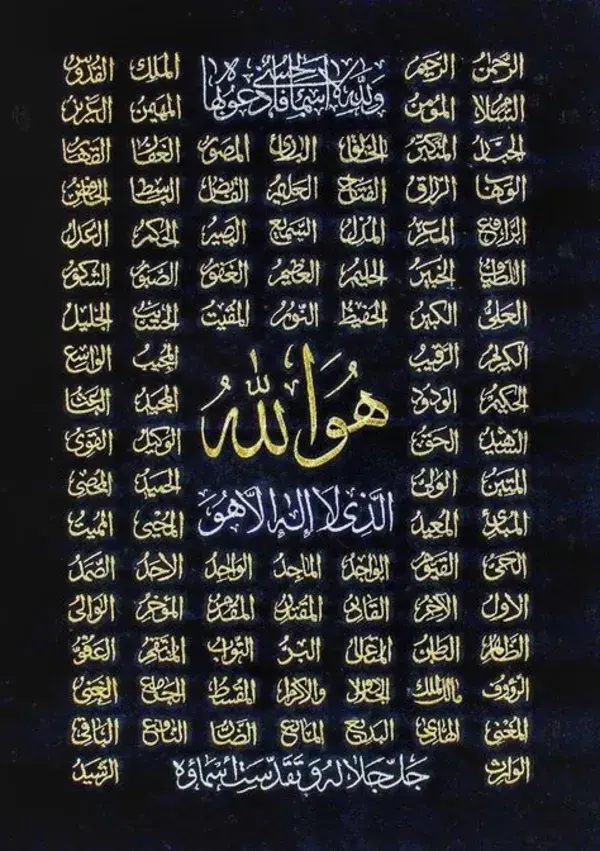 الرحمن الرحيم ولله الأسماء الحسنى فادعوه بها الملك القدوس
السلام المؤمن المهيمن العزيز
الجبار المتكبر الخالق البارئ المصور الغفار القهار
الوهاب الرزاق الفتاح العليم القابض الباسط الخافض
الرافع المعز المذل السميع البصير الحكم العدل
اللطيف الخبير الحليم العظيم الغفور الصبور الشكور
العلي الكبير الحفيظ النور المقيت الحسيب الجليل
الكريم الرقيب المجيب الواسع
الحكيم الودود المجيد الباعث
هو الله
الشهيد الحق الوكيل القوي
المتين الولي الحميد المحصي
الذي لا إله إلا هو
المبدئ المعيد المحيي المميت
الحي القيوم الواجد الماجد الواحد الأحد الصمد
الأول الآخر القادر المقتدر المقدم المؤخر الوالي
الظاهر الباطن المتعالي البر التواب المنتقم العفو
الرؤوف مالك الملك ذو الجلال والإكرام المقسط الجامع الغني
المغني الهادي البديع المانع الضار النافع الباقي
الوارث جل جلاله وتقدست أسماؤه الرشيد